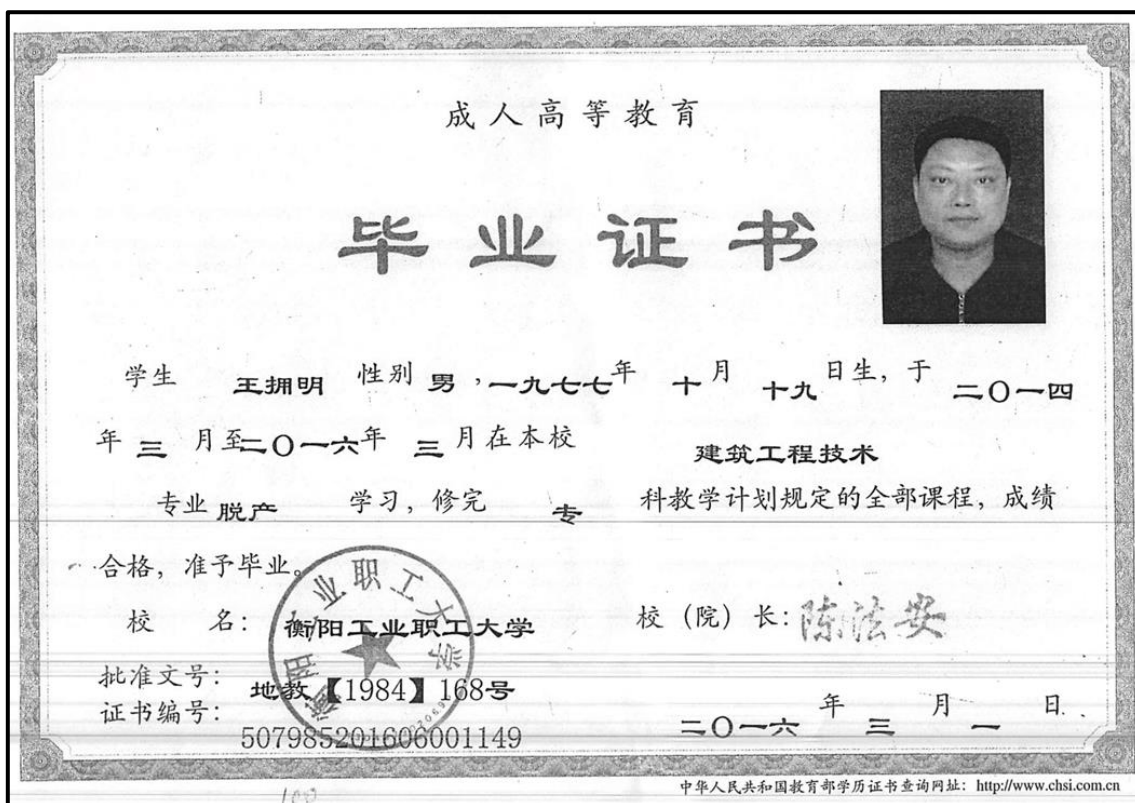 成人高等教育
毕业证书
学生 王拥明 性别 男,一九七七年 十月 十九 日生,于 二〇一四
年 三 月至二〇一六年 三 月在本校 建筑工程技术
专业 脱产 学习,修完 专 科教学计划规定的全部课程,成绩
合格,准予毕业。
衡阳工业职工大学
校 名: 衡阳工业职工大学 校(院)长: 陈法安
批准文号: 地教【1984】168号
证书编号: 507985201606001149
二〇一六 年 三 月 一 日
中华人民共和国教育部学历证书查询网址: http://www.chsi.com.cn
100